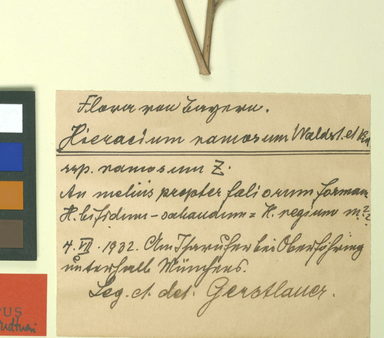 Flora von Bayern.
Hieracium ramosum Waldst. et Kit
ssp. ramosum Z.
An melius propter foliorum formam
H. bifidum - = H. regium m??
4. VII. 1932. Am Isarufer bei Oberföhring
unterhalb Münchens.
Leg. et det. Gerstlauer.
PUS